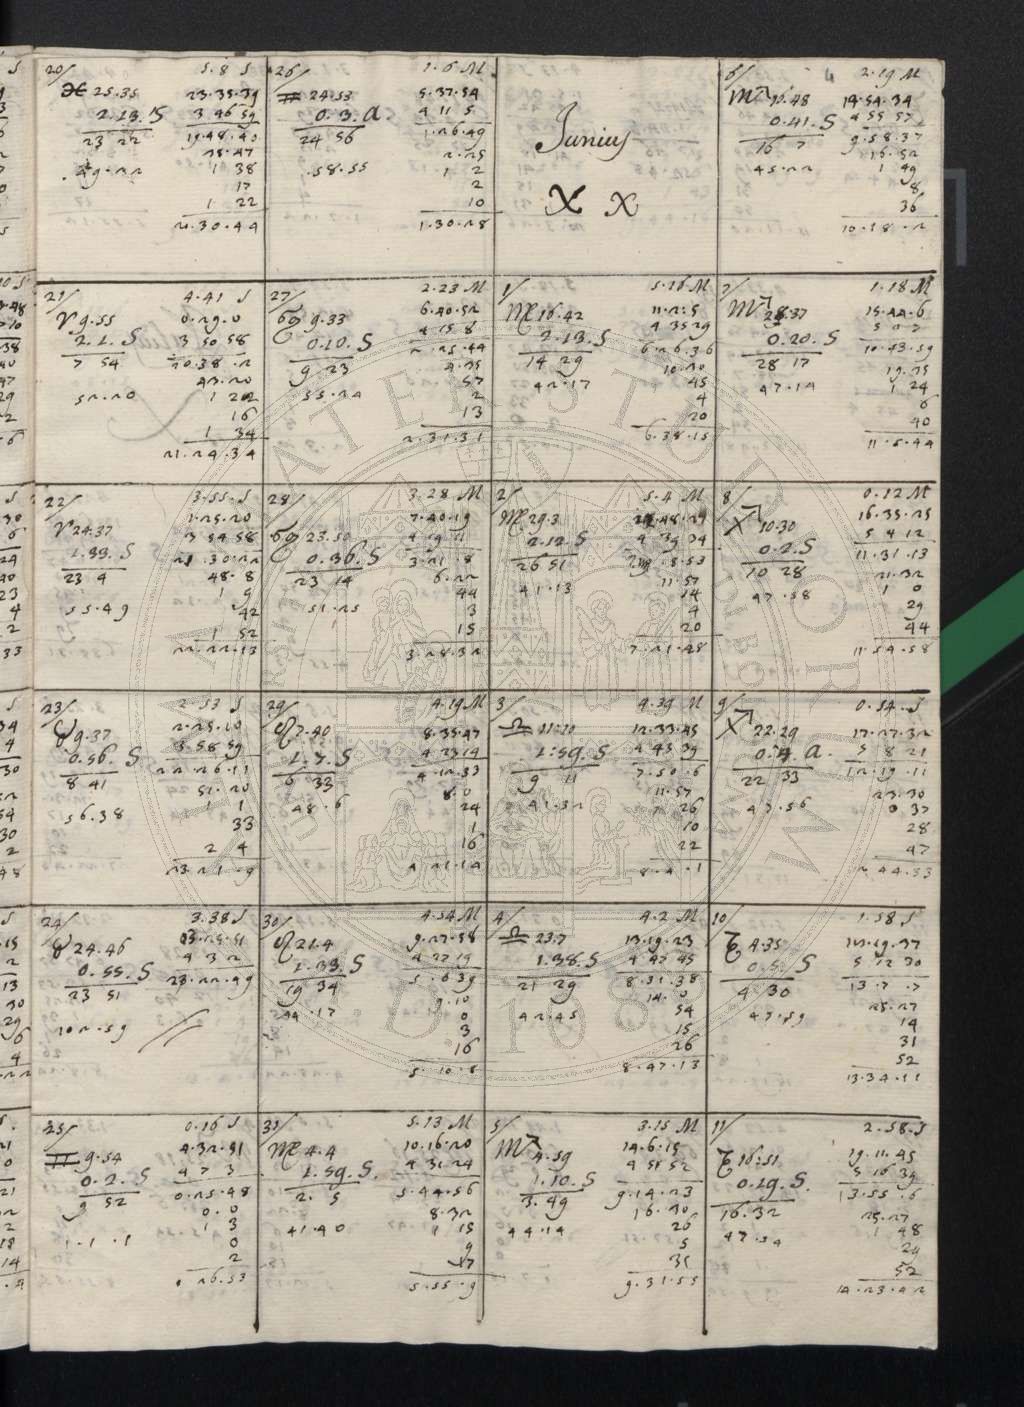 20/ 5.8 S
♓ 25.35 23.35.39
2.13. S 3 46 59
23 22 19.48.40
25.47
49.22 1 38
17
1 22
21.30.44
21/ 4.41 S
♈ 9.55 0.29.0
2.1. S 3 50 58
7 54 20.38.2
42.20
52.20 1 22
16
1 34
21.24.34
22/ 3.55.S
♈ 24.37 1.25.20
1.33. S 3 54 58
23 4 21.30.22
48.8
55.49 1 9
42
1 52
22.22.13
23/ 2.53 S
♉ 9.37 2.25.10
0.56. S 3.58 59
8 41 22.26.11
51.20
56.38 1 1
33
2 4
23.21.9
24/ 3.38 S
♉ 24.46 3.25.51
0.55. S 4 3 2
23 51 23.22.49
102.59
25/ 0.16 S
♊ 9.54 4.32.51
0.2. S 4 7 3
9 52 0.25.48
0.0
1.1.1 1 3
0
2
0.26.53
26/ 1.6 M
♊ 24.53 5.37.54
0.3. a. 4 11 5
24 56 1.26.49
2.25
58.55 1 2
2
10
1.30.28
27/ 2.23 M
♋ 9.33 6.40.52
0.10. S 4 15 8
9 23 2.25.44
4.25
55.24 57
2
13
2.31.31
28/ 3.28 M
♋ 23.50 7.40.19
0.36. S 4 19 11
23 14 3.21.8
6.22
51.25 44
3
15
3.28.32
29/ 4.19 M
♌ 7.40 8.35.47
1.7. S 4 23 14
6 33 4.12.33
8.0
48.6 24
1
16
4.21.14
30/ 4.54 M
♌ 21.4 9.27.58
1.33. S 4 27 19
19 34 5.0 39
9.10
44.17 0
3
16
5.10.8
31/ 5.13 M
♍ 4.4 10.16.20
1.59. S. 4 31 24
2. 5 5.44.56
8.32
41.40 1 15
9
17
5.55.9
Junius
X X
1/ 5.16 M
♍ 16.42 11.2.5
2.13. S 4 35 29
14 29 6.26.36
10.20
42.17 45
4
20
6.38.15
2/ 5.4 M
♍ 29.3
2.12. S 4 39 34
26 51
11.57
41.53 14
4
20
7.21.28
3/ 4.39 M
♎ 11.10 12.33.45
1.59. S 4 43 39
9 11 7.50.6
11.57
41.32 1 26
10
22
8.4.1
4/ 4.2 M
♎ 23.7 13.19.23
1.38. S 4 47 45
21 29 8.31.38
14.0
42.45 54
15
26
8.47.13
5/ 3.15 M
♏ 4.59 14.6.15
1.10. S 4 51 52
3. 49 9.14.23
16.30
44.14 26
5
31
9.31.55
6/ 2.19 M
♏ 16.48 14.54.34
0.41. S 4 55 57
16 7 9.58.37
16.52
45.22 1 49
8
36
10.18.2
7/ 1.18 M
♏ 28.37 15.44.6
0.20. S 5 0 7
28 17 10.43.59
19.25
47.14 1 24
6
40
11.5.44
8/ 0.12 M
♐ 10.30 16.35.25
0.2. S 5 4 12
10 28 11.31.13
21.32
47.58 1 0
29
44
11.54.58
9/ 0.54.S
♐ 22.29 17.27.32
0.4 a. 5 8 21
22 33 12.19.11
23.30
47.56 0 37
28
47
12.44.33
10/ 1.58 S
♑ 4.35
0.5. S 5 12 30
4 30 13.7.7
25.27
47.59 14
31
52
13.34.11
11/ 2.58.S
♑ 16.51 19.11.45
0.19. S. 5 16 39
16.32 13.55.6
25.27
47.54 1 48
24
52
14.23.42